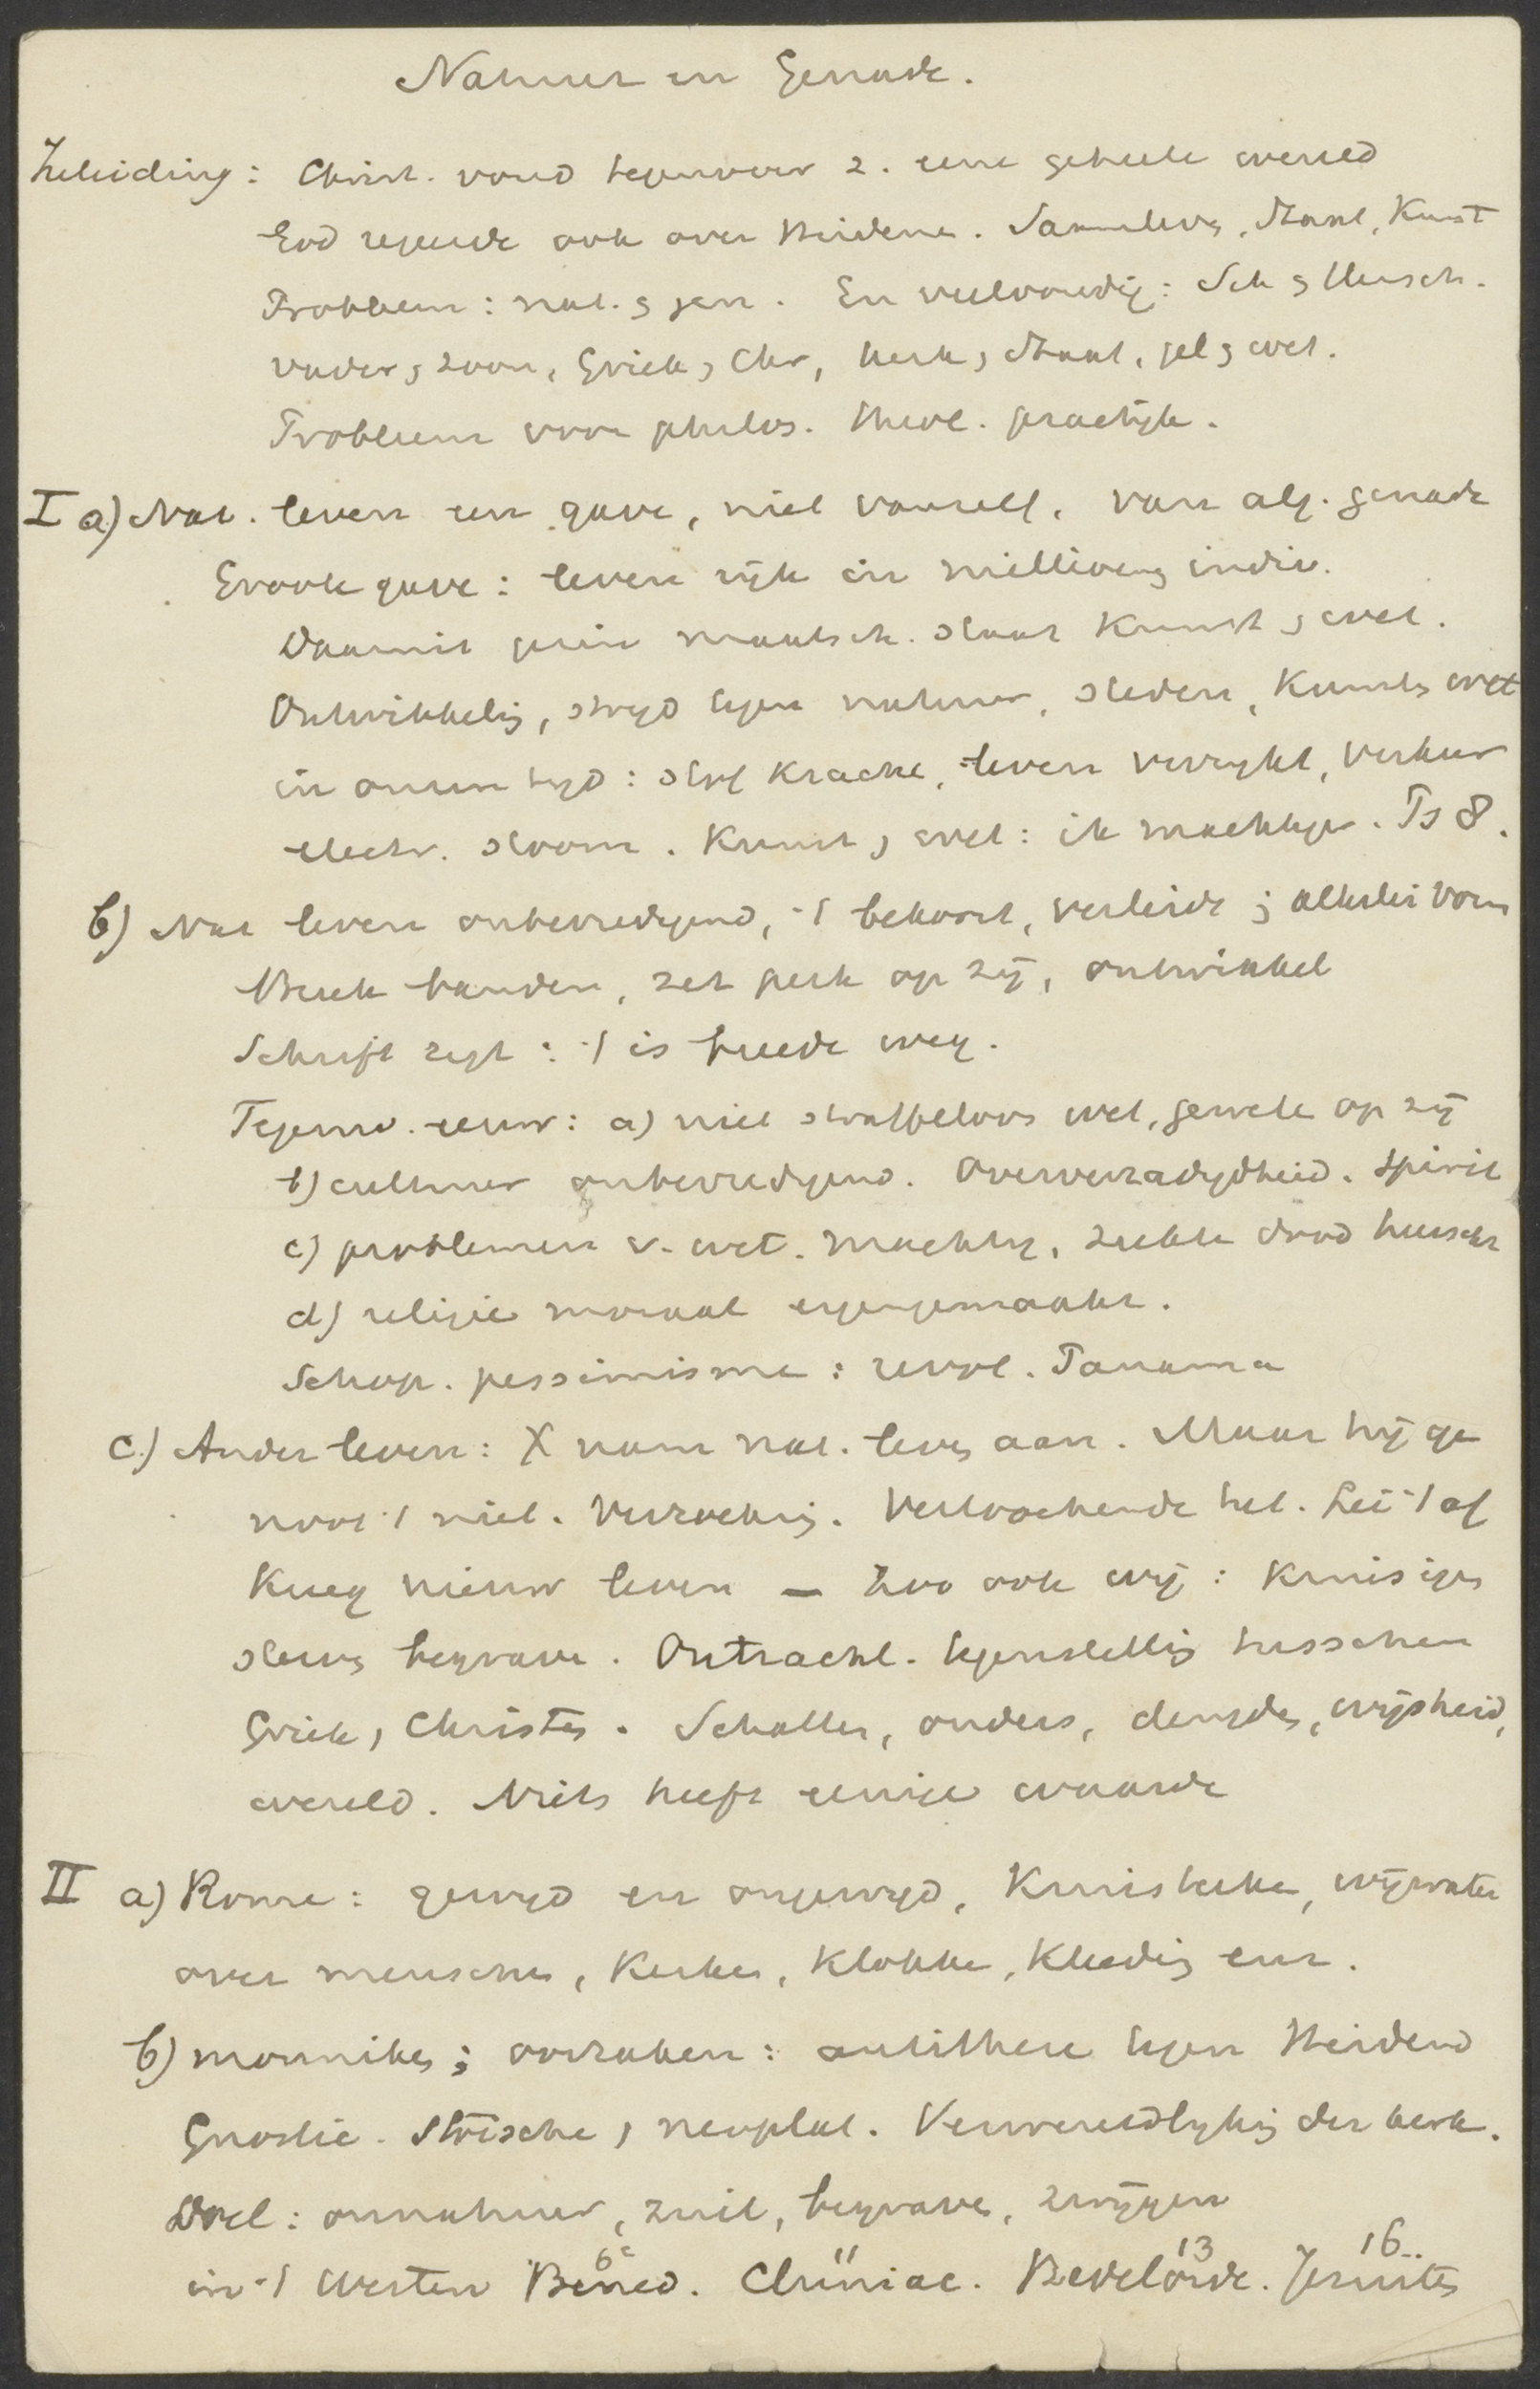 Natuur en Genade.
Inleiding: Christ. vond tegenover z. eene geheele wereld
God regeerde ook over Heidenen. Samenlevg, Staat, Kunst
Probleem: nat. & gen. En veelvoudig: Sch & Mensch.
Vader & zoon, Griek & Chr, kerk & Staat, gel & wet.
Probleem voor philos. theol. practijk.
I a) Nat. leven een gave, niet vanzelf, van alg. genade
Groote gave: leven rijk in millioeng indiv.
Daaruit gezin maatsch. staat Kunst & wet.
Ontwikkelg, strijd tegen natuur, steden, Kunst & wet
in onzen tijd: stof Kracht, leven verrijkt, verkeer
electr. stoom. Kunst & wet: ik machtiger. Ps 8.
b) Nat leven onbevredigend, 't bekoort, verleidt; allerlei vorm
Breek banden, zet perk op zij, ontwikkel
Schrift zegt: 't is breede weg.
Tegenw. eeuw: a) niet straffeloos wet, gewete op zij
b) cultuur onbevredigend. Oververzadigdheid. Spirit
c) problemen v. wet. machtig, ziekte dood heerscht
d) religie moraal
Schop. pessimisme: revol. Panama
c) Ander leven: X nam nat. levg aan. Maar hij ge
noot 't niet. Verzoekig. Verloochende het. Lei 't af
Kreeg nieuw leven — Zoo ook wij: Kruisigg
stervg begrave. Ontzachl. tegenstellig tusschen
Griek & Christen. Schatten, ouders, deugdg, wijsheid,
wereld. Niets heeft eenige waarde
II a) Rome: gewijd en ongewijd, Kruisteeke, wijwater
over mensche, Kerke, Klokke, Kleedig enz.
b) monnikeg; oorzaken: antithese tegen Heidend
Gnostic. Stoïsche & neoplat. Verwereldlijkig der kerk.
Doel: onnatuur, zuil, begrave, zwijgen
in 't Westen Bened. 6e Cluniac. 11 Bedelorde. 13 Jesuiten 16